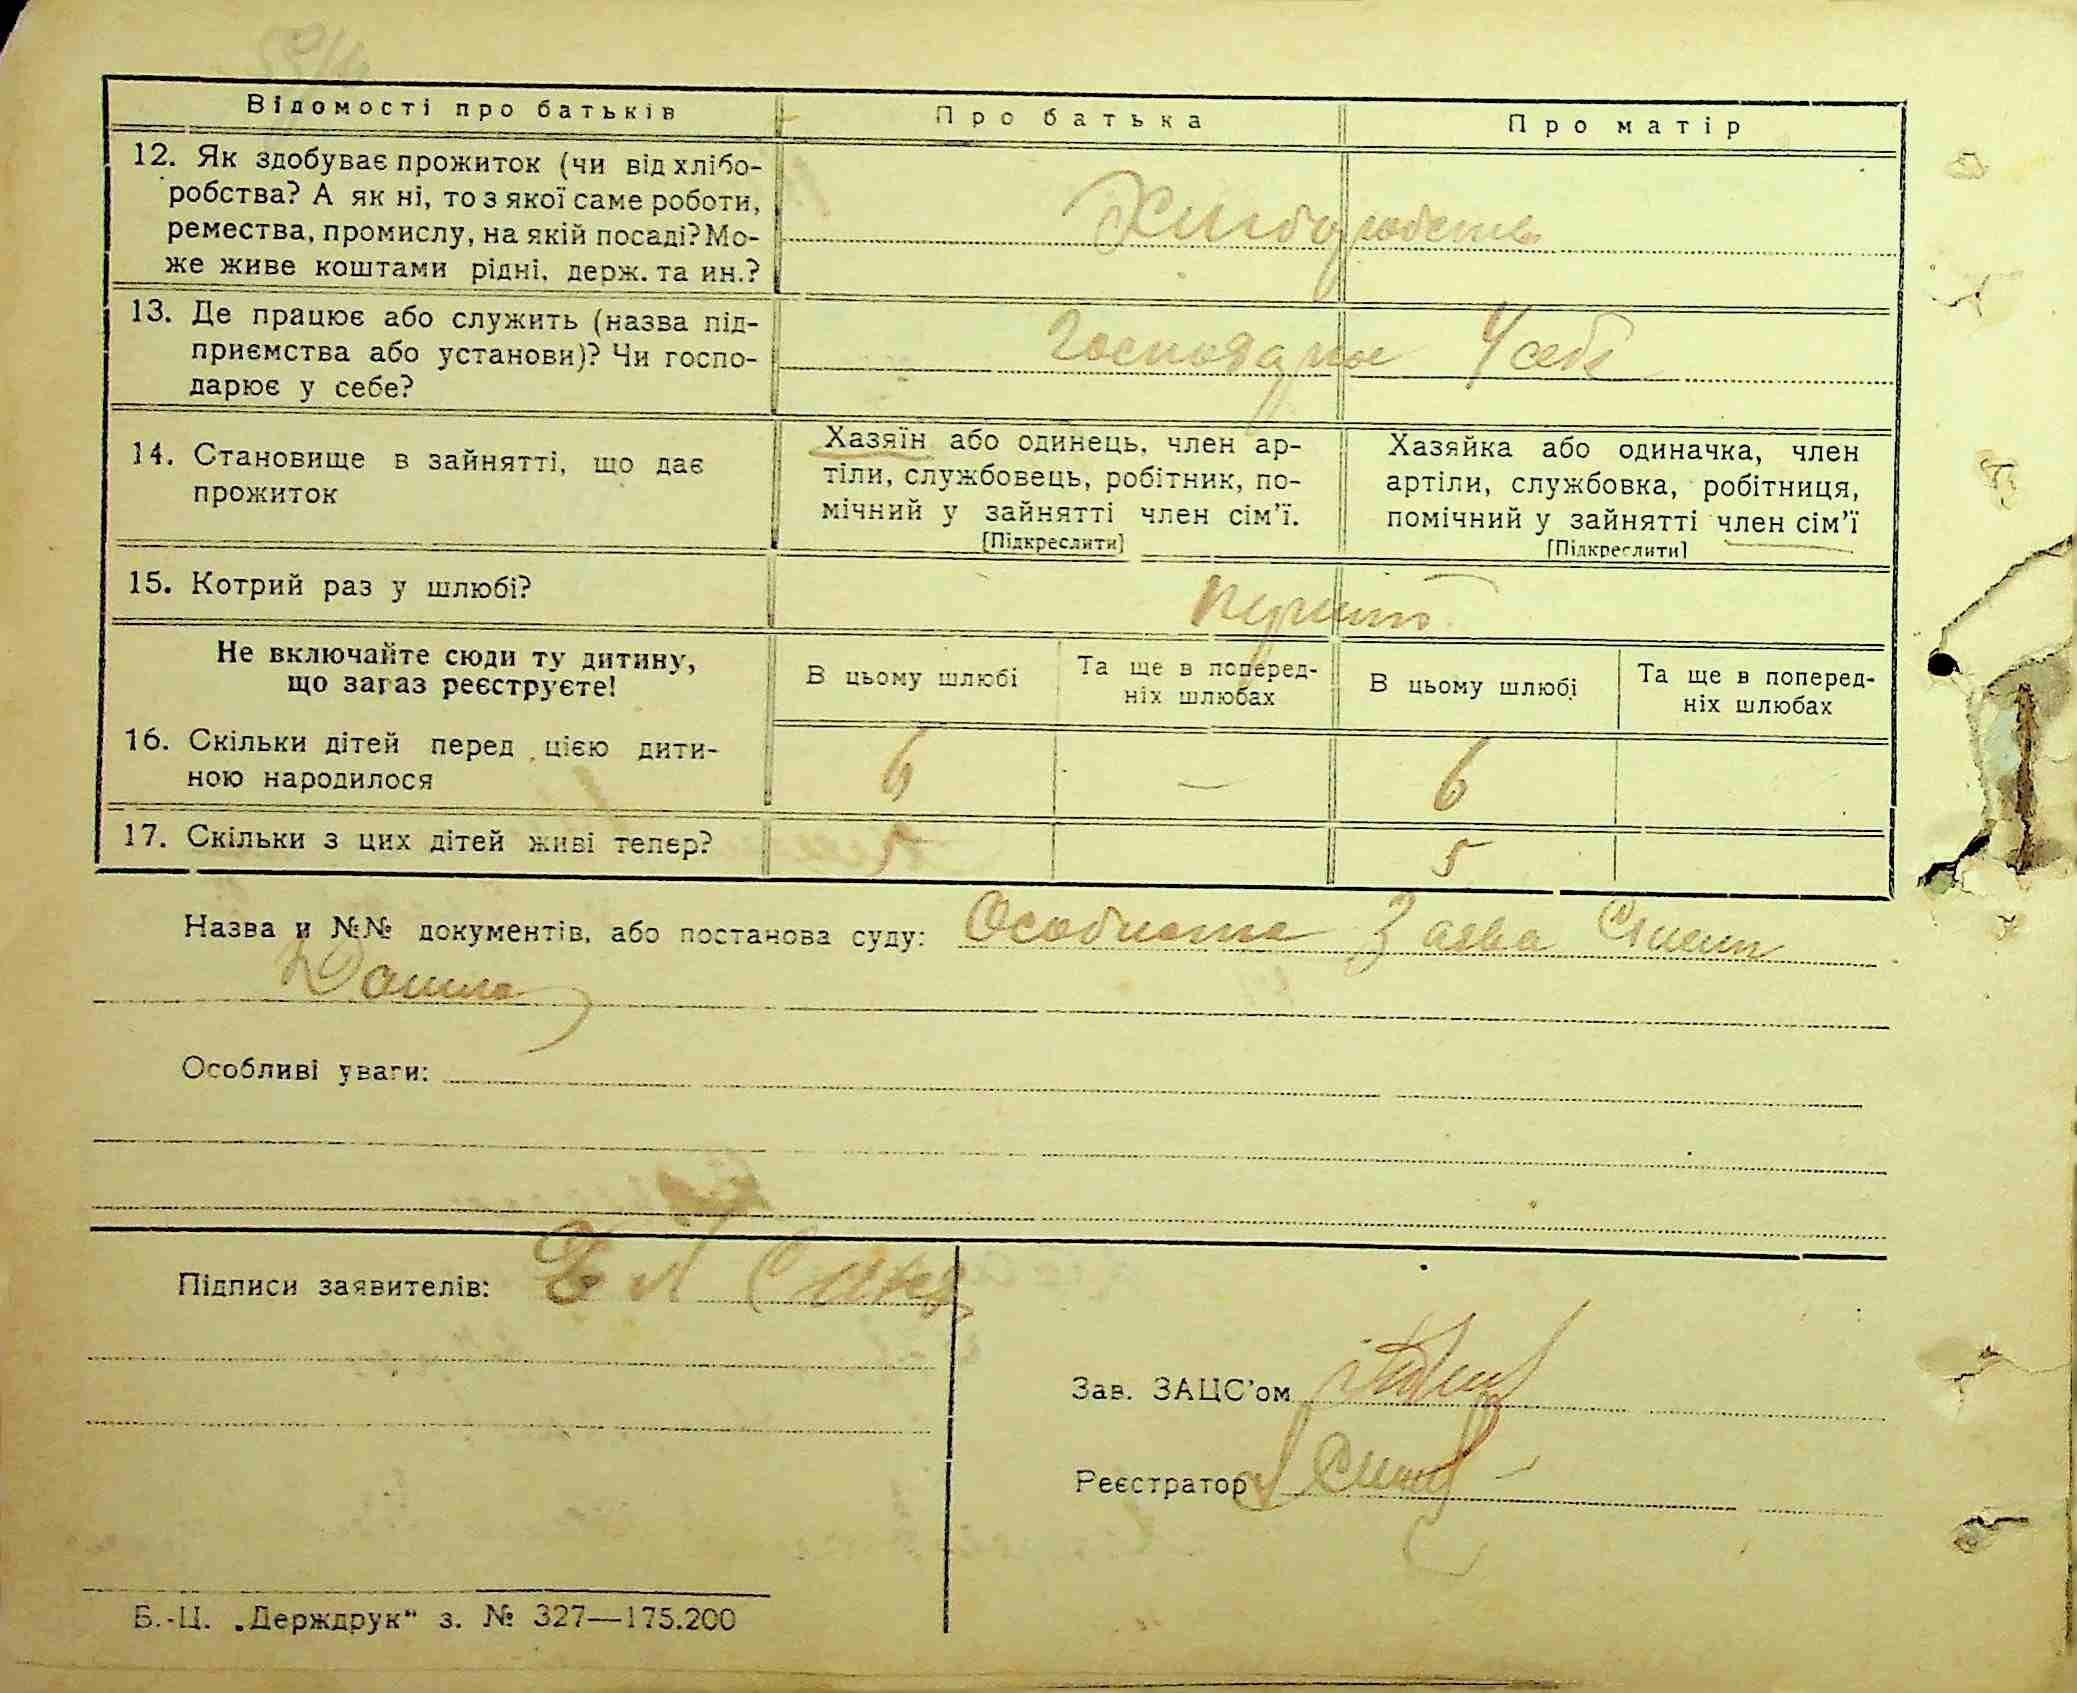 Відомості про батьків
Про батька
Про матір
12. Як здобуває прожиток (чи від хлібо-
робства? А як ні, то з якої саме роботи,
ремества, промислу, на якій посаді? Мо-
же живе коштами рідні, держ. та ин.?
Хліборобство
13. Де працює або служить (назва під-
приємства або установи)? Чи госпо-
дарює у себе?
Господарює У себе
14. Становище в зайнятті, що дає
прожиток
Хазяїн або одинець, член ар-
тіли, службовець, робітник, по-
мічний у зайнятті член сім'ї.
[Підкреслити]
Хазяйка або одиначка, член
артіли, службовка, робітниця,
помічний у зайнятті член сім'ї
[Підкреслити]
15. Котрий раз у шлюбі?
Не включайте сюди ту дитину,
що загаз реєструєте!
В цьому шлюбі
Та ще в поперед-
ніх шлюбах
В цьому шлюбі
Та ще в поперед-
ніх шлюбах
16. Скільки дітей перед цією дити-
ною народилося
6 — 6
17. Скільки з цих дітей живі тепер?
5 5
Назва и №№ документів, або постанова суду: Особиста Заява
Особливі уваги:
Підписи заявителів:
Зав. ЗАЦС'ом
Реєстратор
Б.-Ц. „Держдрук" з. № 327—175.200